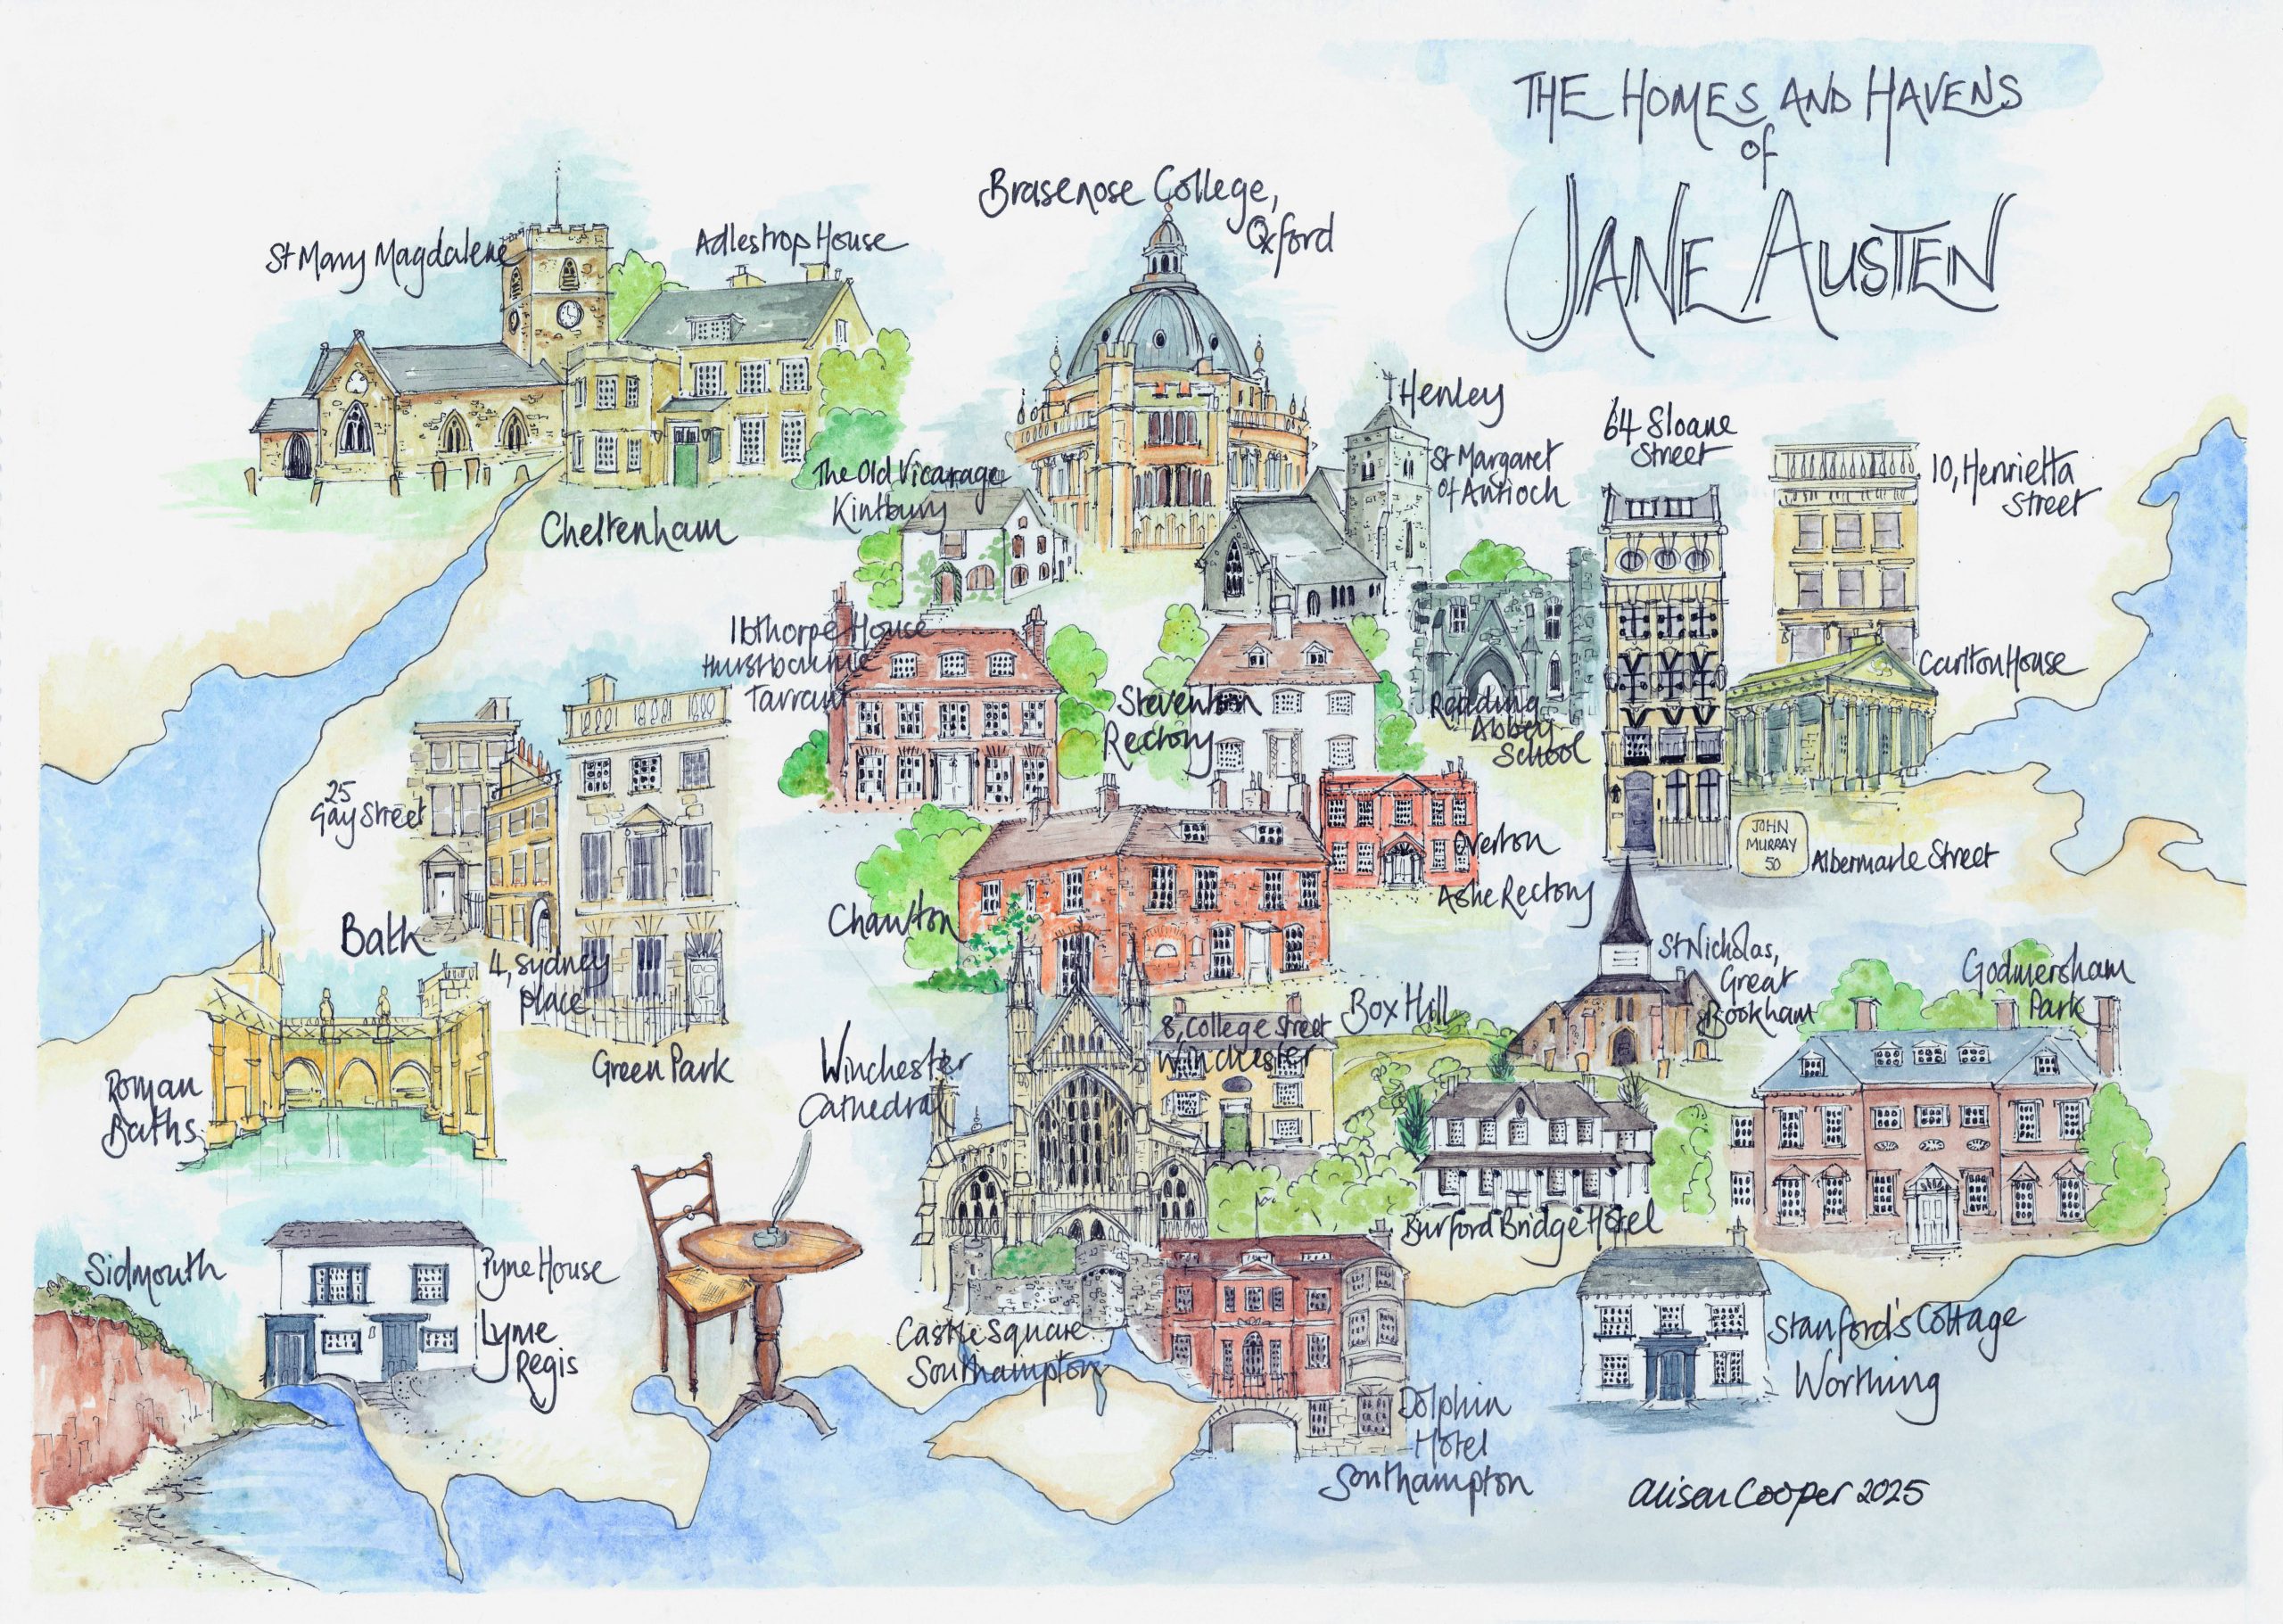 THE HOMES AND HAVENS
of
JANE AUSTEN
St Mary Magdalene
Adlestrop House
Brasenose College,
Oxford
Cheltenham
The Old Vicarage
Kintbury
Henley
St Margaret
of Antioch
64 Sloane
Street
10, Henrietta
Street
Ibthorpe House
Hurstbourne
Tarrant
Steventon
Rectory
Reading
Abbey
School
Carlton House
25
Gay Street
Bath
4, Sydney
place
Green Park
Chawton
Overton
Ashe Rectory
JOHN
MURRAY
50
Albermarle Street
St Nicholas,
Great
Bookham
Godmersham
Park
Roman
Baths
Winchester
Cathedral
8, College Street
Winchester
Box Hill
Burford Bridge Hotel
Sidmouth
Pyne House
Lyme
Regis
Castle Square
Southampton
Dolphin
Hotel
Southampton
Stanford's Cottage
Worthing
Alison Cooper 2025